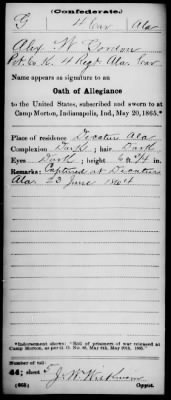 (Confederate.)
G 4 Cav Ala
Alex W Gordon
Pvt. Co. K. 4 Regt Ala. Cav
Name appears as signature to an
Oath of Allegiance
to the United States, subscribed and sworn to at
Camp Morton, Indianapolis, Ind., May 20, 1865.*
Place of residence Decatur Ala
Complexion Dark ; hair Dark
Eyes Dark ; height 6 ft. ¾ in.
Remarks: Captured at Decatur
Ala. 23 June 1864
*Indorsement shows: "Roll of prisoners of war released at
Camp Morton, as per G. O. No. 85, May 8th, May 20th, 1865."
Number of roll:
44; sheet
J. W.
(665) Copyist.